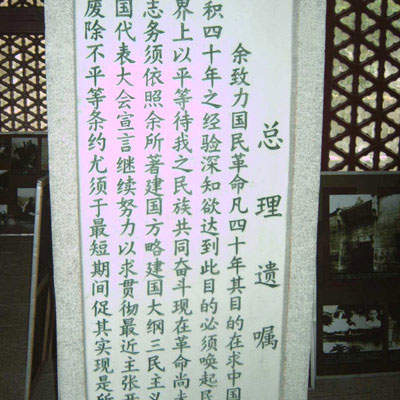 总理遗嘱
余致力国民革命凡四十年其目的在求中国
积四十年之经验深知欲达到此目的必须唤起民
界上以平等待我之民族共同奋斗现在革命尚未
志务须依照余所著建国方略建国大纲三民主义
国代表大会宣言继续努力以求贯彻最近主张开
废除不平等条约尤须于最短期间促其实现是所